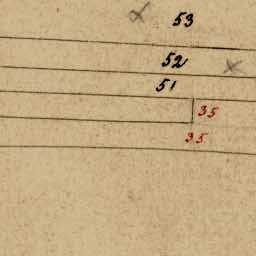 53
52
51
35
35